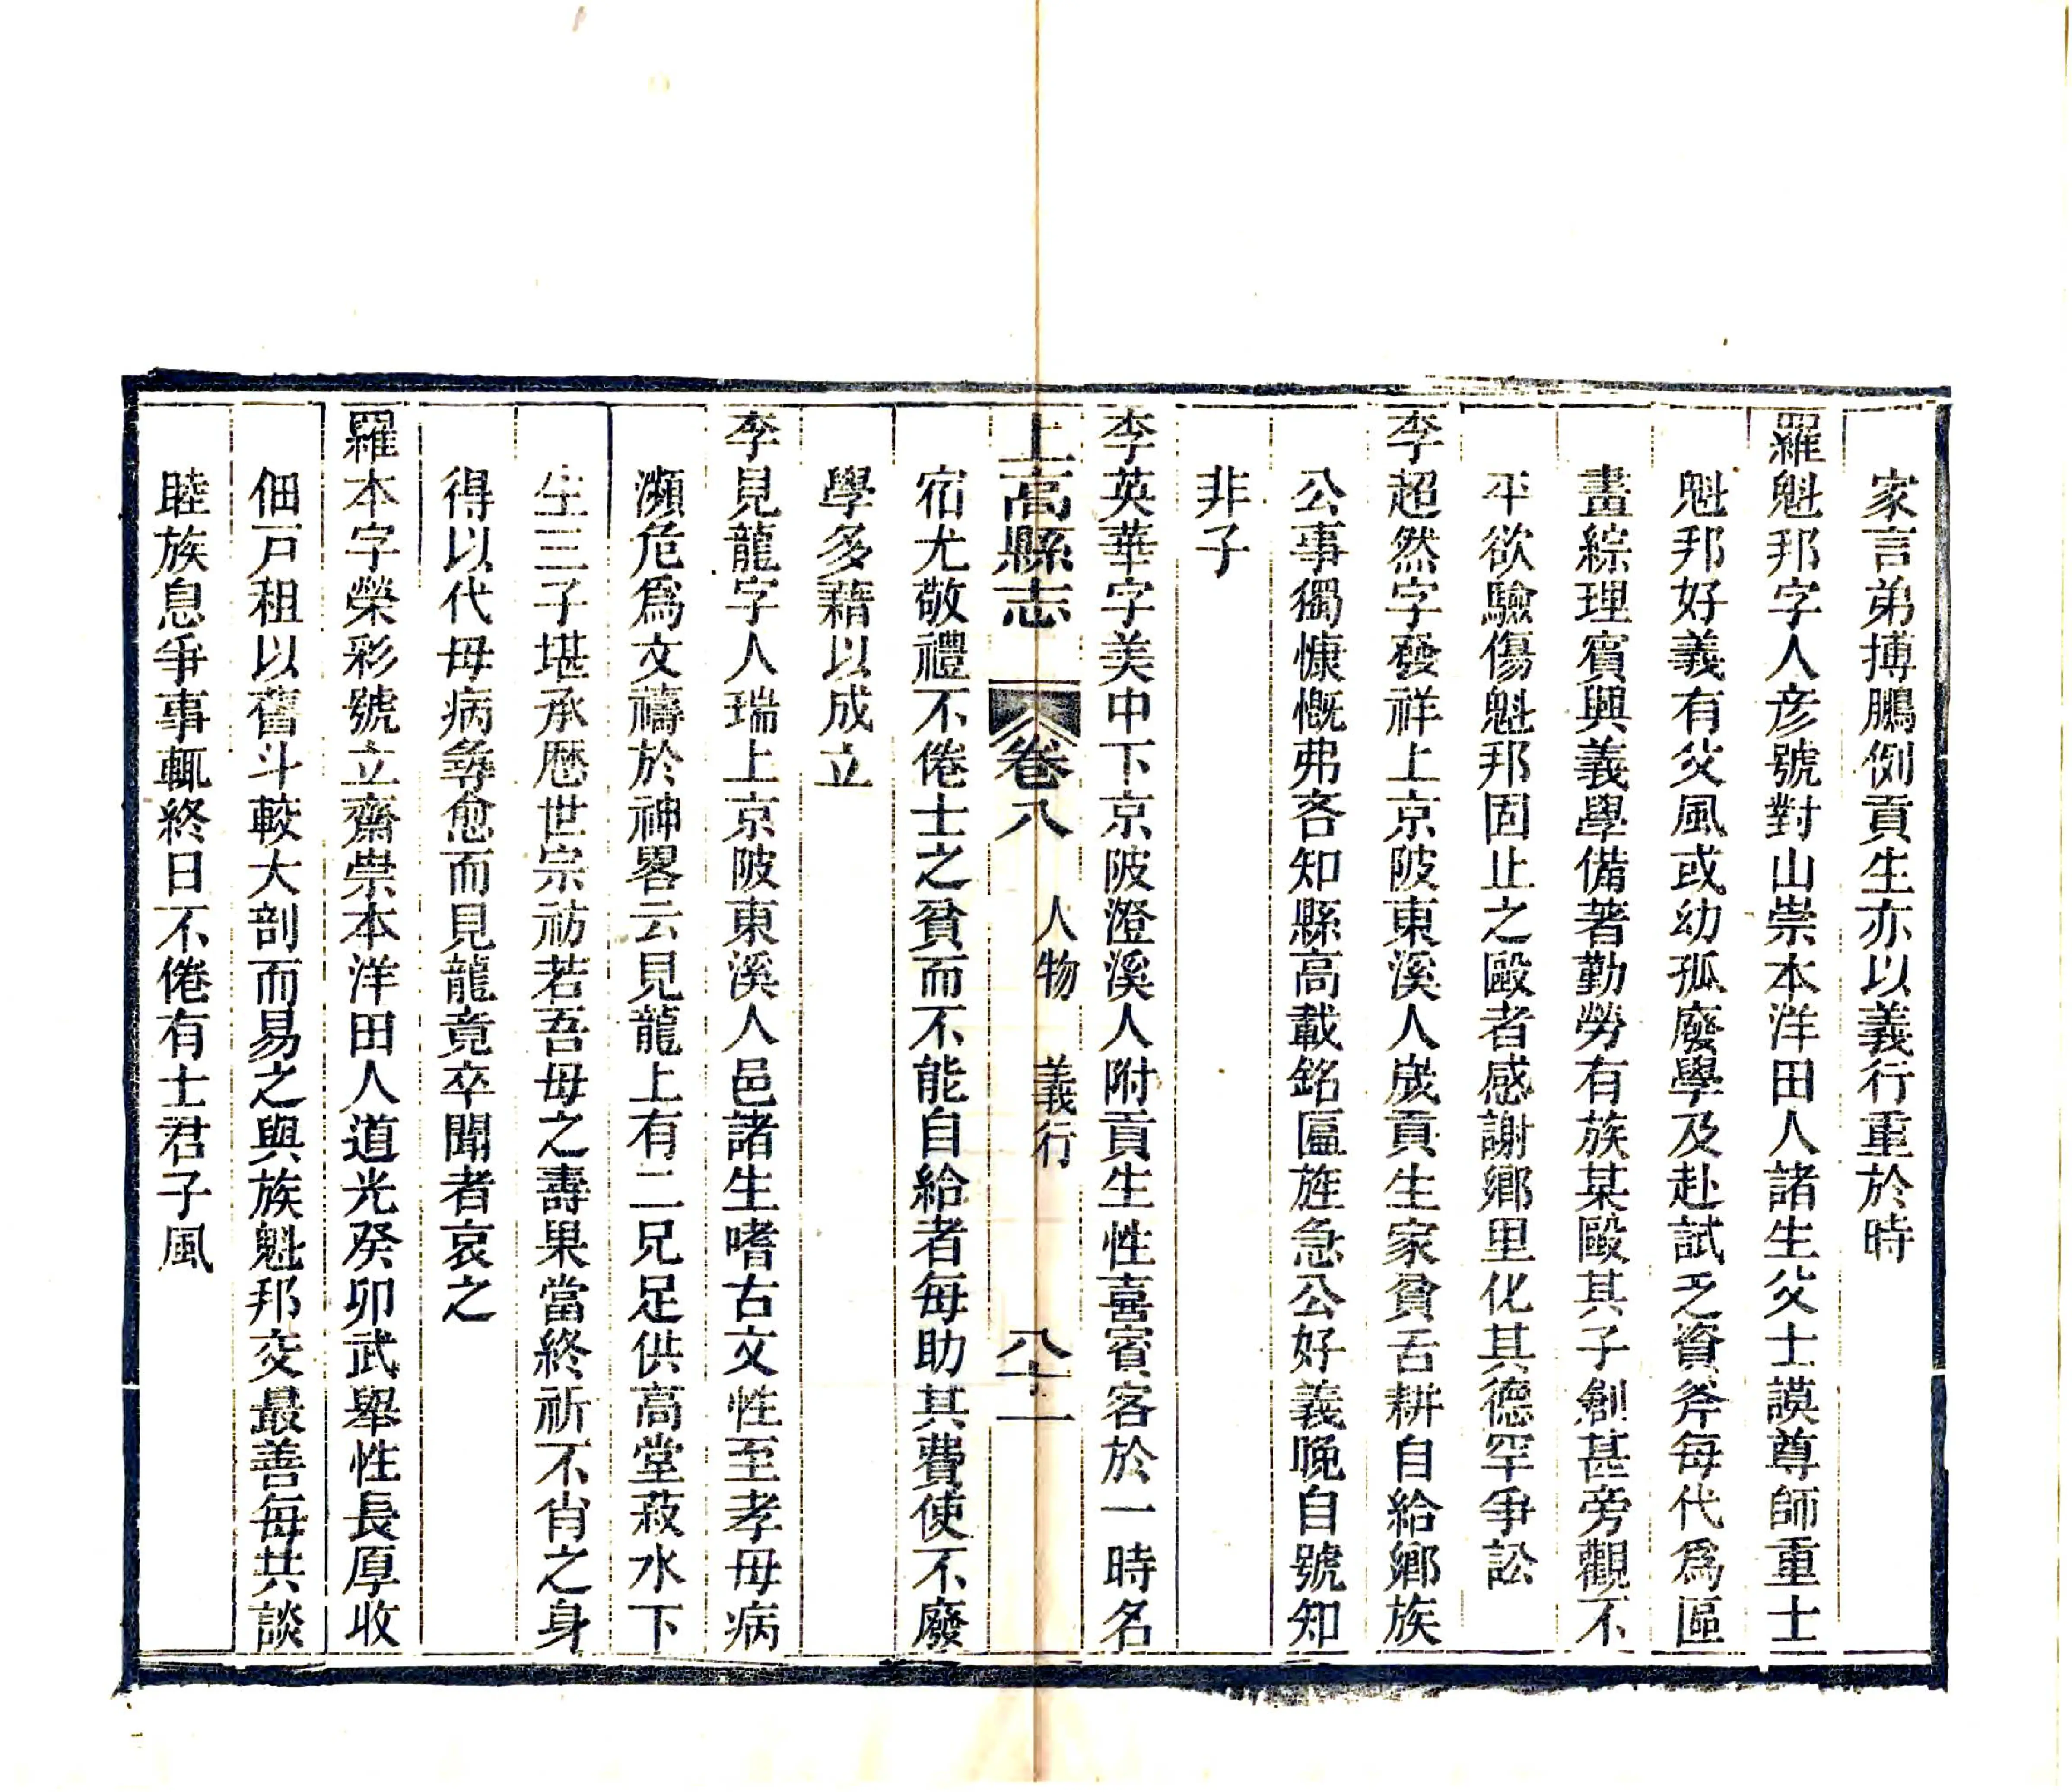 家言弟搏鵬例貢生亦以義行重於時
羅魁邦字人彦號對山崇本洋田人諸生父士謨尊師重士
魁邦好義有父風或幼孤廢學及赴試乏資斧每代爲區
畫綜理賓興義學備著勤勞有族某毆其子創甚旁觀不
平欲驗傷魁邦固止之毆者感謝鄉里化其德罕爭訟
李超然字發祥上京陂東溪人歲貢生家貧舌耕自給鄉族
公事獨慷慨弗吝知縣高載銘匾旌急公好義晚自號知
非子
李英華字美中下京陂澄溪人附貢生性喜賓客於一時名
上高縣志 卷八 人物 義行 八十一
宿尤敬禮不倦士之貧而不能自給者每助其費使不廢
學多藉以成立
李見龍字人瑞上京陂東溪人邑諸生嗜古文性至孝母病
瀕危爲文禱於神畧云見龍上有二兄足供高堂菽水下
生三子堪承歷世宗祊若吾母之壽果當終祈不肖之身
得以代母病尋愈而見龍竟卒聞者哀之
羅本字榮彩號立齋崇本洋田人道光癸卯武舉性長厚收
佃戸租以舊斗較大剖而易之與族魁邦交最善每共談
睦族息爭事輒終日不倦有士君子風